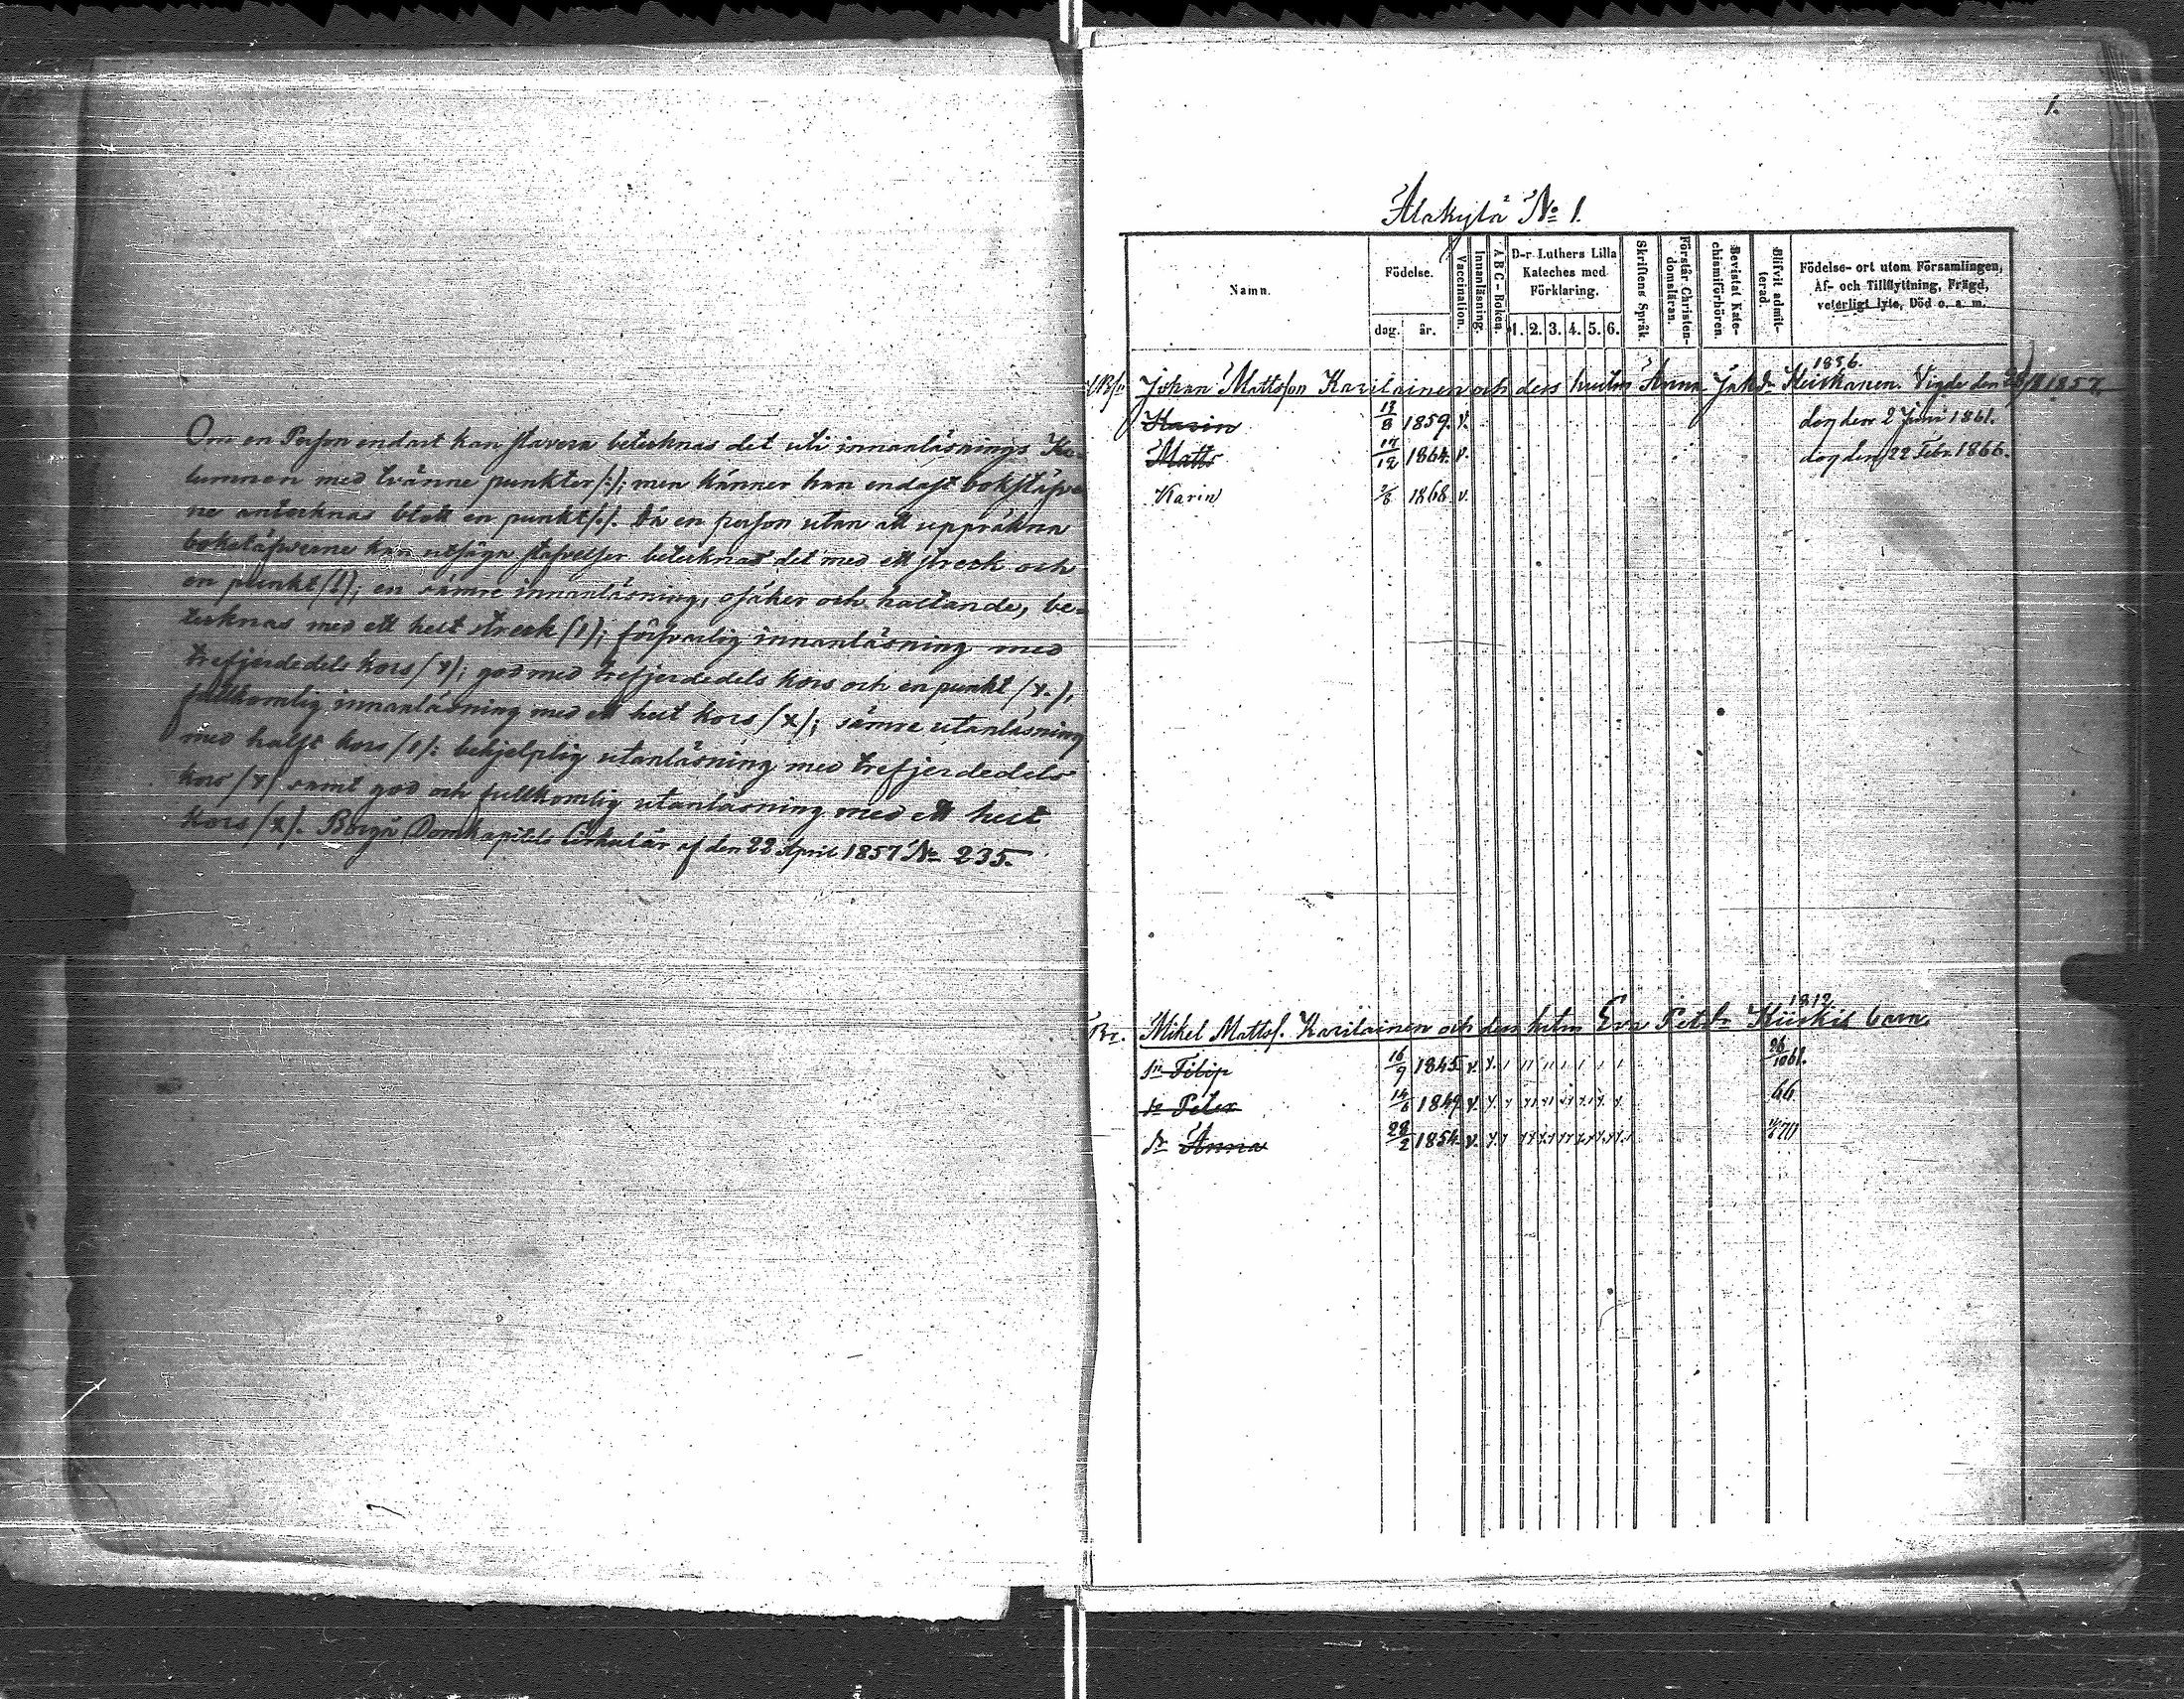 Om en Person endast kan stavera betecknas det uti innanläsnings Ko-
lumnen med tvänne punkter (:); men känner han endast bokstäfver-
ne antecknas blott en punkt (.). Då en person utan att uppräkna
bokstäfverne kan utsäga stafvelser betecknas det med ett streck och
en punkt (!); en sämre innanläsning, osäker och haltande, be-
tecknas med ett helt streck (1); försvarlig innanläsning med
trefjerdedels kors (Y); god med trefjerdedels kors och en punkt (Y.),
fullkomlig innanläsning med ett helt kors (X); sämre utanläsning
med halft kors (r): behjelplig utanläsning med trefjerdedels
kors (Y) samt god och fullkomlig utanläsning med ett helt
kors (X). Borgå Domkapitels Cirkulär af den 22 April 1857 No 235.
1.
Alakylä No 1.
Namn.
Födelse.
dag. år.
Vaccination.
Innanläsning.
A B C - Boken.
D-r Luthers Lilla
Kateches med
Förklaring.
1. 2. 3. 4. 5. 6.
Skriftens Språk
Förstår Christen-
domsläran.
Bevistat Kate-
chismiförhören.
Blifvit admit-
terad.
Födelse- ort utom Församlingen,
Af- och Tillflyttning, Frägd,
veterligt lyte, Död o. a. m.
1836.
Johan Mattsson Karilainen och dess hustru Anna Jakdr Heiskanen. Vigde den 1857
Karin 13/8 1859. v. död den 2 Juni 1861.
Matts 17/12 1864. v. död den 22 Febr. 1866.
Karin 2/6 1868 v.
1812
Br. Mikel Mattss. Karilainen och dess hustru Eva Petdr Kiiskis barn.
sn Filip 16/9 1845 v. 26/10 61.
sn Peter 14/6 1849 v. 66
dr Anna 28/2 1854 v. 70